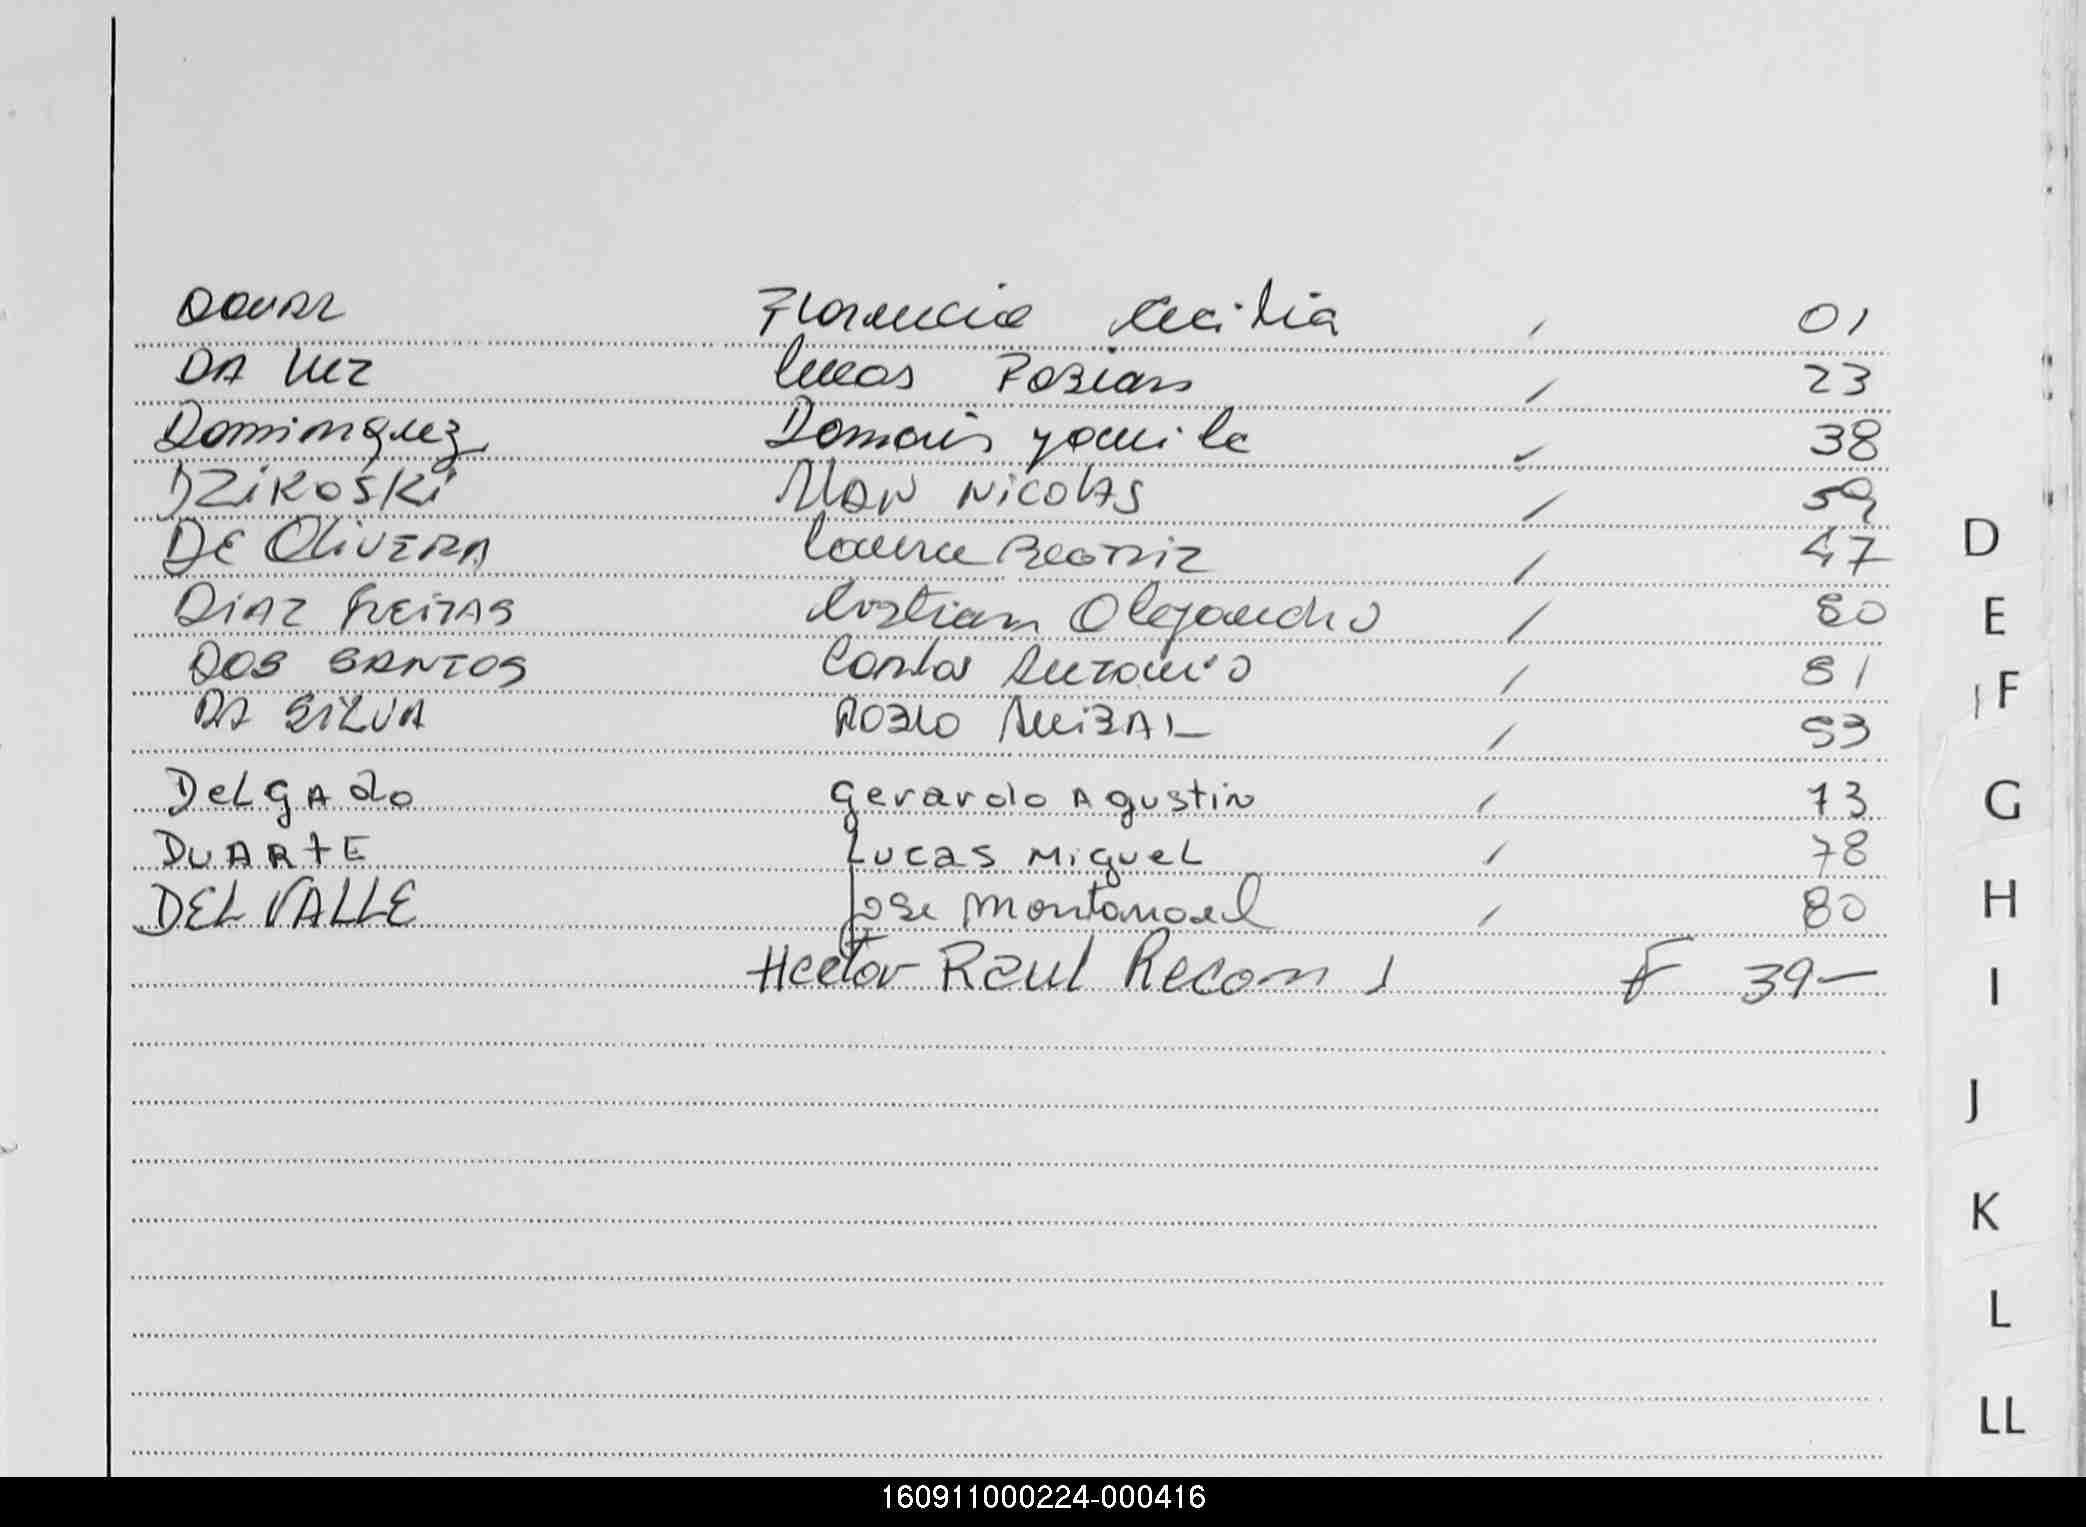 Florencia Cecilia , 01
DA LUZ Lucas Fabian / 23
Dominguez Damaris Yamila / 38
DZIKOSKI Alan Nicolas / 59
DE OLIVERA Laura Beatriz / 47
DIAZ FREITAS Cristian Alejandro / 50
DOS SANTOS Carlos Antonio / 51
DA SILVA Pablo Anibal / 53
Delgado Gerardo Agustin / 73
DUARTE Lucas Miguel / 78
DEL VALLE Jose / 80
Hector Raul F 39-
D
E
F
G
H
I
J
K
L
LL
160911000224-000416